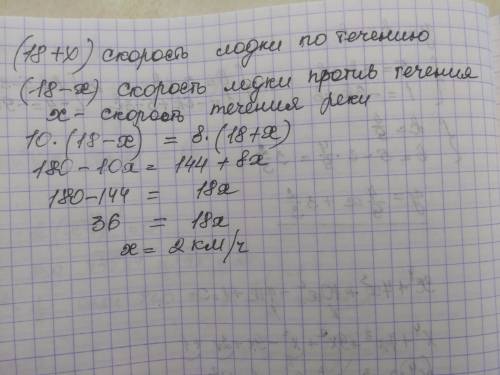 (18+x) скорость лодки по течению
(18-x) скорость лодки против течения
x - скорость течения реки
10·(18-x) = 8·(18+x)
180-10x = 144+8x
180-144 = 18x
36 = 18x
x = 2 км/ч